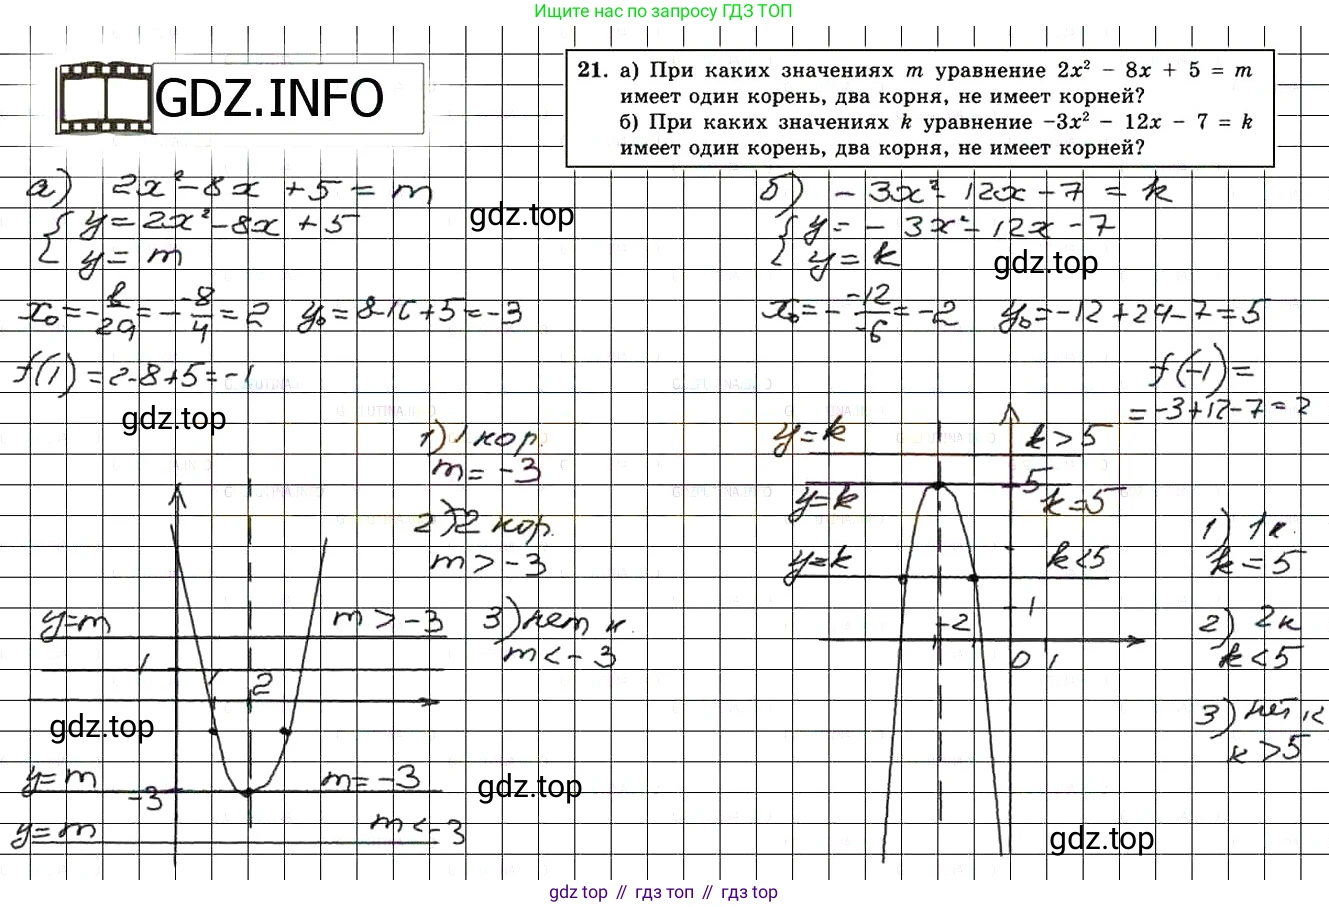 Ищите нас по запросу ГДЗ ТОП
GDZ.INFO
21. а) При каких значениях m уравнение 2x² − 8x + 5 = m
имеет один корень, два корня, не имеет корней?
б) При каких значениях k уравнение −3x² − 12x − 7 = k
имеет один корень, два корня, не имеет корней?
а) 2x² − 8x + 5 = m
{ y = 2x² − 8x + 5
y = m
gdz.top
x₀ = −b/2a = −−8/4 = 2 y₀ = 8−16+5 = −3
f(1) = 2−8+5 = −1
gdz.top
1) 1 кор.
m = −3
2) 2 кор.
m > −3
3) нет к.
m < −3
y = m m > −3
1
2
gdz.top
y = m m = −3
−3
gdz.top
y = m m < −3
б) − 3x² − 12x − 7 = k
{ y = − 3x² − 12x − 7
y = k
gdz.top
x₀ = − −12/−6 = −2 y₀ = −12 + 24 − 7 = 5
f(−1) =
= −3 + 12 − 7 = 2
y = k k > 5
5
y = k k = 5
y = k k < 5
1
−2
0 1
1) 1к.
k = 5
2) 2к
k < 5
3) нет к
k > 5
gdz.top
gdz top // гдз топ // гдз top